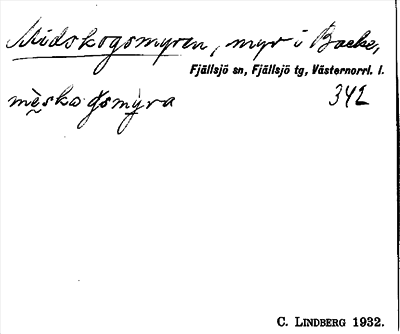 Midskogsmyren, myr i Backe,
Fjällsjö sn, Fjällsjö tg, Västernorrl. l.
mè̮skogsmỳra 342
C. LINDBERG 1932.